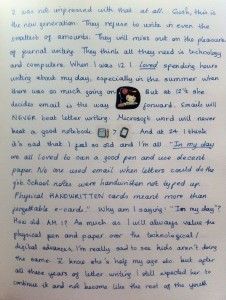 I was not impressed with that at all. Gosh, this is
the new generation. They refuse to write in even the
smallest of amounts. They will miss out on the pleasures
of journal writing. They think all they need is technology
and computers. When I was 12 I loved spending hours
writing about my day, especially in the summer when
there was so much going on. But at 12½ she
decides email is the way forward. Emails will
NEVER beat letter writing. Microsoft word will never
beat a good notebook. And at 24 I think
it's sad that I feel so old and I'm all. "In my day
we all loved to own a good pen and use decent
paper. No one used email when letters could do the
job. School notes were handwritten not typed up.
Physical HANDWRITTEN cards meant more than
forgettable e-cards". Why am I saying "In my day"?
How old AM I? As much as I will always value the
physical pen and paper over the technological/
digital advances, I'm really sad to see kids aren't doing
the same. I know she's half my age etc. but after
all these years of letter writing I still expected her to
continue it and not become like the rest of the youth